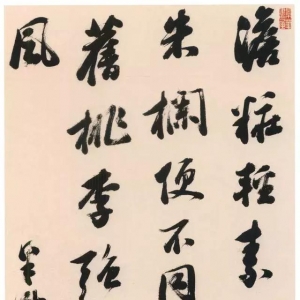 澹粧輕素
朱欄便不同
舊桃李強
風